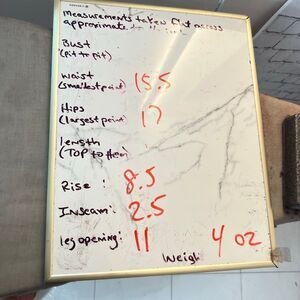 Measurements taken flat across
approximate
Bust
(pit to pit)
Waist 15.5
(smallest point)
Hips 17
(largest point)
length
(TOP to Hem)
Rise : 8.5
Inseam : 2.5
leg opening : 11
Weigh 4 oz